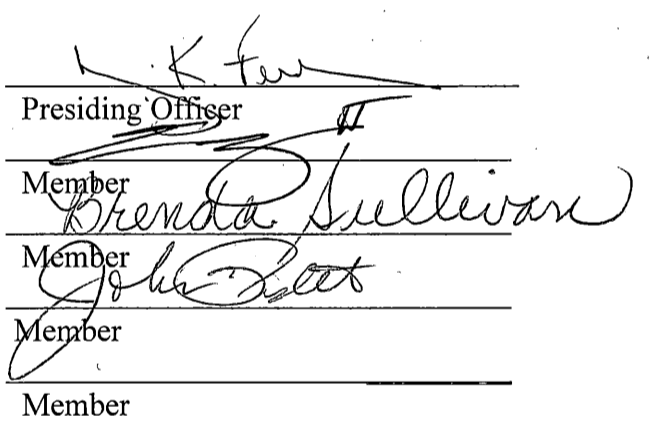 K.
Presiding Officer
II
Member
Brenda Sullivan
Member
John
Member
Member